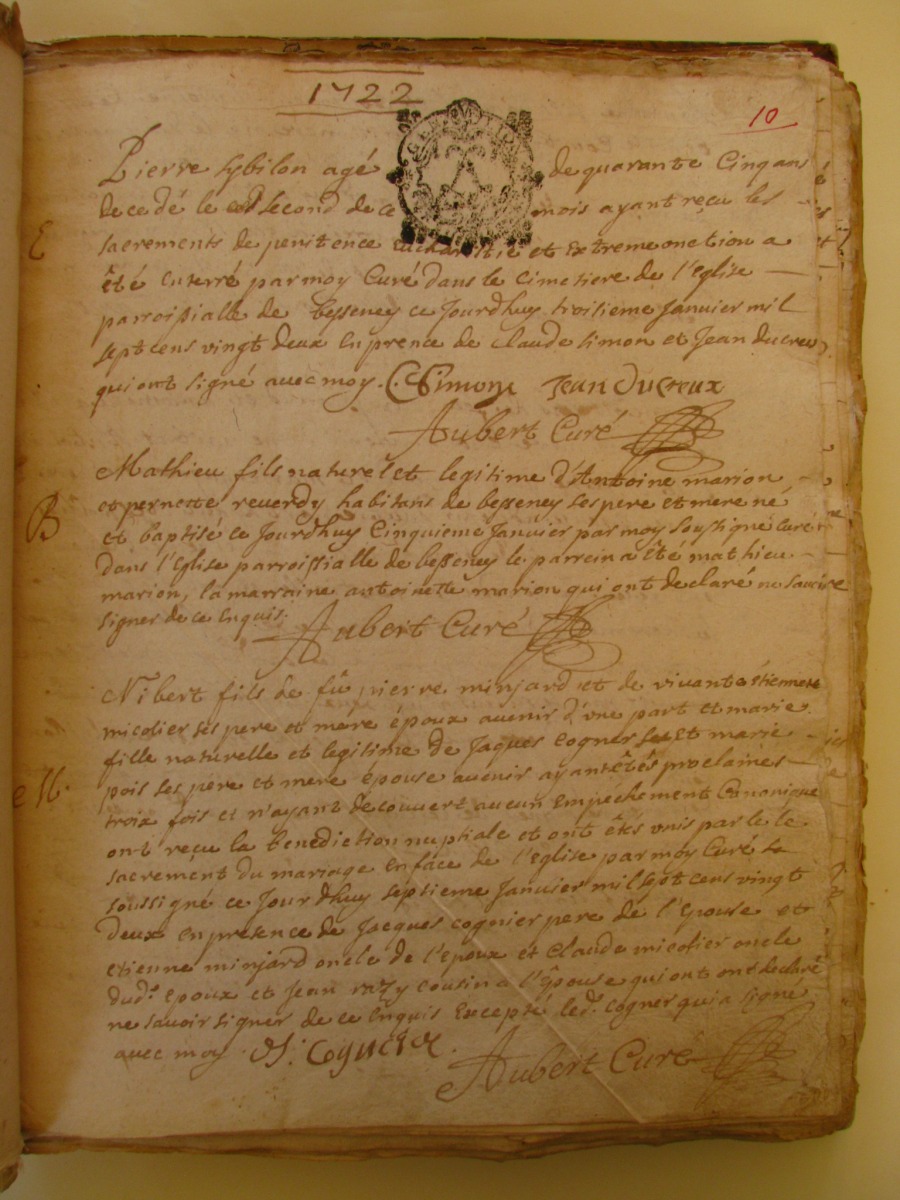 1722
10
Pierre sybilon agé de quarante Cinq ans
decedé le second de ce mois ayant reçu les
sacrements de penitence eucharistie et extremeonction a
E
été enterré par moy Curé dans le Cimetiere de l'eglise
parroissialle de besseney ce Jourdhuy troisieme Janvier mil
sept cens vingt deux en prence de Claude simon et Jean ducreux
qui ont signé avec moy. C Simon Jean Ducreux
Aubert Curé
Mathieu fils naturel et legitime d'Antoine marion
et pernette reverdy habitans de besseney ses pere et mere né
B
et baptisé ce Jourdhuy Cinquieme Janvier par moy soussigne Curé
dans l'Eglise parroissialle de besseney le parrein a ête mathieu
marion, la marraine antoinette marion qui ont declaré ne savoire
signer de ce Enquis.
Aubert Curé
Nibert fils de fû pierre minjard et de vivante êtiennete
micolier ses pere et mere époux avenir d'une part et marie
fille naturelle et legitime de Jaques Cogner et marie
pois ses pere et mere épouse avenir ayant étés proclamés
M.
troix fois et n'ayant découvert aucun Empechement Canonique
ont reçu la benediction nuptiale et ont êtés unis par le le
sacrement du mariage en face de l'eglise par moy Curé
soussigné ce Jourdhuy septieme Janvier mil sept cens vingt
deux en presence de Jacques cognier pere de l'Epouse et
etienne minjard oncle de l'epoux et Claude micolier oncle
dud. epoux et Jean razy cousin a l'êpouse qui ont ont declaré
ne savoir signer de ce Enquis Excepté led. Cogner qui a signé
avec moy. J. Cognier.
Aubert Curé